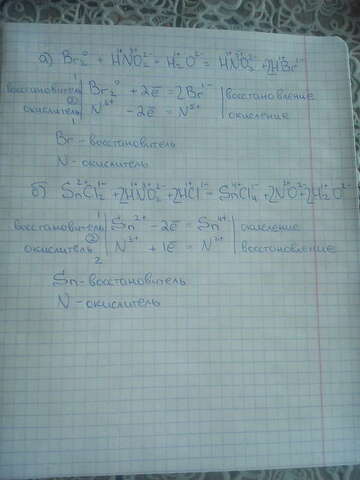 а) Br₂⁰ + H¹⁺N³⁺O₂²⁻ + H₂¹⁺O²⁻ = H¹⁺N⁵⁺O₃²⁻ + 2H¹⁺Br¹⁻
восстановитель 1 | Br₂⁰ + 2ē = 2Br¹⁻ | восстановление
окислитель 1 | N³⁺ - 2ē = N⁵⁺ | окисление
Br - восстановитель
N - окислитель
б) Sn²⁺Cl₂¹⁻ + 2H¹⁺N³⁺O₂²⁻ + 2H¹⁺Cl¹⁻ = Sn⁴⁺Cl₄¹⁻ + 2N²⁺O²⁻ + 2H₂¹⁺O²⁻
восстановитель 1 | Sn²⁺ - 2ē = Sn⁴⁺ | окисление
окислитель 2 | N³⁺ + 1ē = N²⁺ | восстановление
Sn - восстановитель
N - окислитель